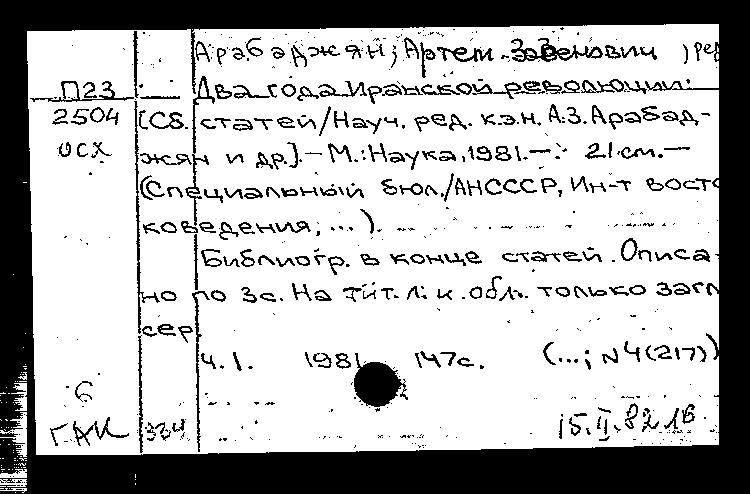 Арабаджян, Артем Завенович, ред
П23 Два года Иранской революции:
2504 [Сб. статей/Науч. ред. к.э.н. А.З. Арабад-
осх жян и др.].- М.: Наука, 1981.- 21 см.-
(Специальный бюл./АНСССР, Ин-т восто
коведения; ...).
Библиогр. в конце статей. Описа-
но по 3с. На тит. л. и обл. только загл
сер
ч. 1. 1981 147с. (...; N4(217))
6
ГАК 334 15.II.82 1в